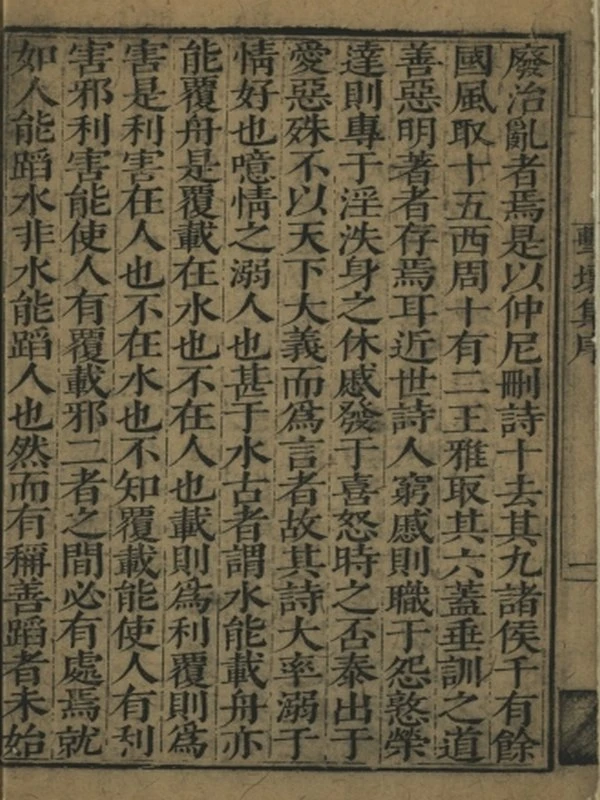 擊壤集序
廢治亂者焉是以仲尼刪詩十去其九諸侯千有餘
國風取十五西周十有二王雅取其六蓋垂訓之道
善惡明著者存焉耳近世詩人窮慼則職于怨憝榮
達則專于淫泆身之休慼發于喜怒時之否泰出于
愛惡殊不以天下大義而爲言者故其詩大率溺于
情好也噫情之溺人也甚于水古者謂水能載舟亦
能覆舟是覆載在水也不在人也載則爲利覆則爲
害是利害在人也不在水也不知覆載能使人有利
害邪利害能使人有覆載邪二者之間必有處焉就
如人能蹈水非水能蹈人也然而有稱善蹈者未始